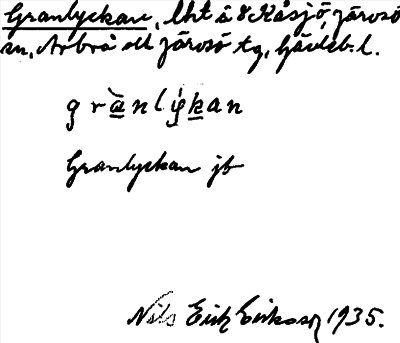 Granlyckan, lht å 8 Kåsjö, Järvsö
sn, Arbrå o Järvsö tg, Gävleb. l.
grànlýkan
Granlyckan jb
Nils Erik Eriksson 1935.